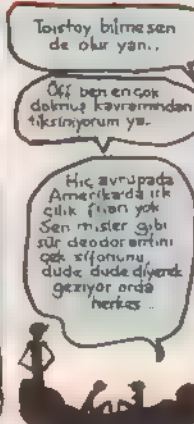 Tolstoy bilmesen
de olur yani..
Öff ben en çok
dolmuş kavramından
tiksiniyorum ya..
Hiç avrupada
Amerika'da ırk
çılık filan yok
Sen mister gibi
sür deodorantını
çek sifonunu,
dude dude diyerek
geziyor orda
herkes..